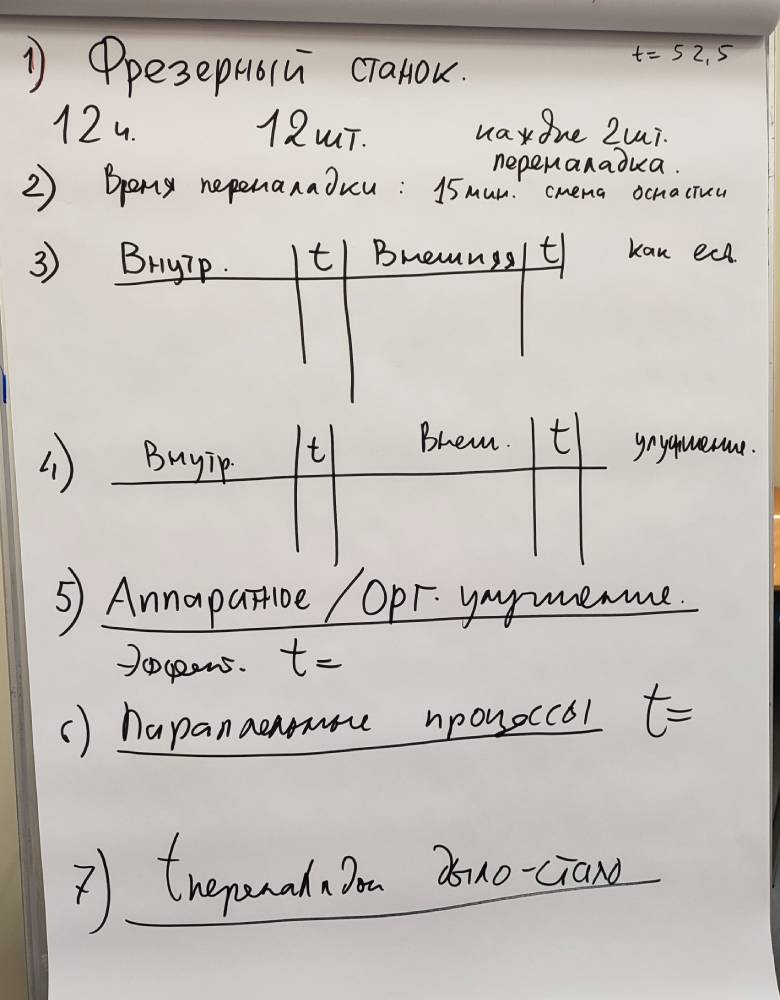 1) Фрезерный станок. t= 52,5
12 ч. 12 шт. каждые 2шт.
переналадка.
2) Время переналадки : 15 мин. смена оснастки
3) Внутр. t Внешняя t как есть
4) Внутр. t Внеш. t улучшение.
5) Аппаратное / Орг. улучшение.
Эффект. t=
6) Параллельные процессы t=
7) t переналадки было-стало